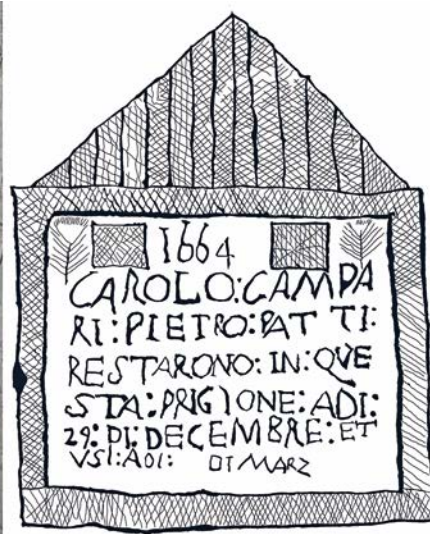 1664
CAROLO:CAMPA
RI:PIETRO:PAT TI:
RESTARONO:IN:QVE
STA:PRIGIONE:ADI:
29:DI:DECEMBRE:ET
VSI:ADI: DI MARZ